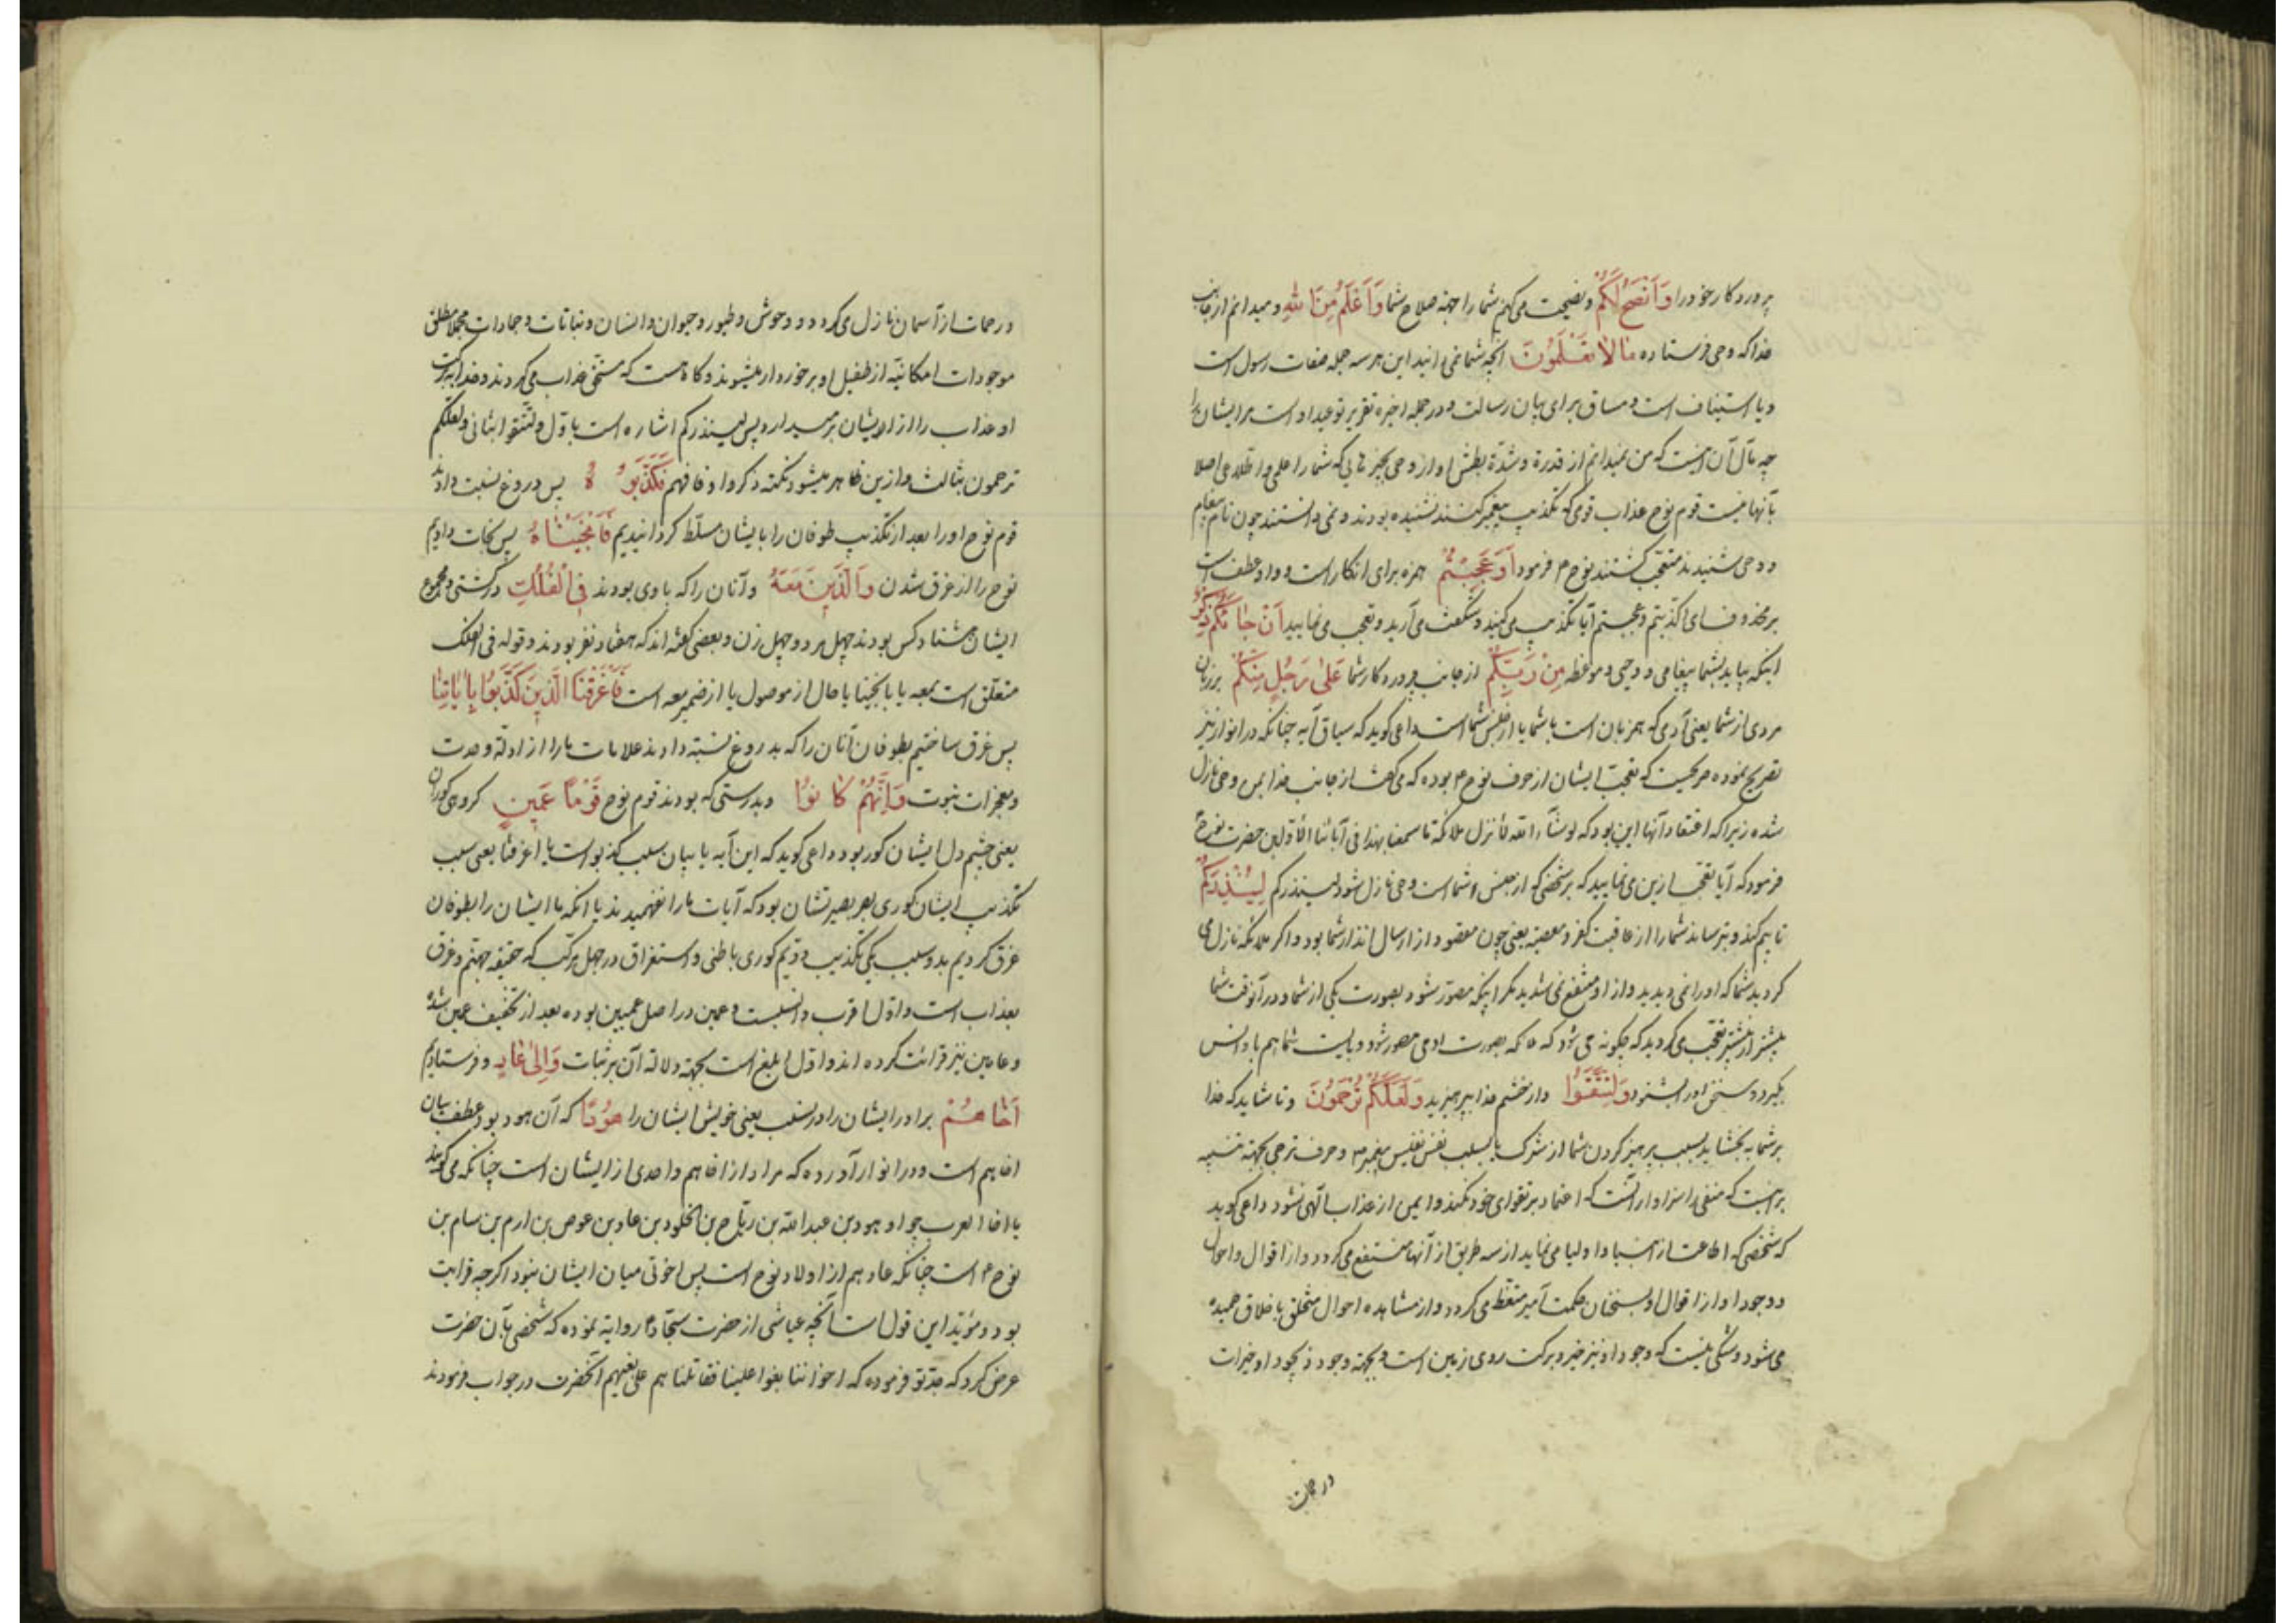 پروردکار خود را وَاَنْصَحُ لَكُمْ ونصیحت می‌کنم شما را جهة صلاح شما وَاَعْلَمُ مِنَ اللهِ ومیدانم از جانب
خدا که وحی فرستاده مَا لَا تَعْلَمُونَ آنچه شما نمی‌دانید این هر سه جمله صفات رسول است
ویا استیناف است ومساق برای بیان رسالت ودر جمله اخیره تقریر توعید او است مر ایشان را
چه مآل آن اینست که من میدانم از قدرة وشدّة بطش او از وحی چیزهایی که شما را علمی واطلاعی اصلا
بآنها نیست قوم نوح عذاب قومی که تکذیب پیغمبر کنند نشنیده بودند ونمی‌دانستند چون نام پیغام
ووحی شنیدند متعجّب کشتند نوح ٤م فرمود اَوَعَجِبْتُمْ همزه برای انکار است وواو عطف است
بر محذوف ای اکذّبتم وعجبتم آیا تکذیب می‌کنید وشکفت می‌آرید وتعجب می‌نمایید اَنْ جَاءَكُمْ ذِكْرٌ
اینکه بیاید بشما پیغامی ووحیی وموعظه مِنْ رَبِّكُمْ از جانب پروردکار شما عَلٰى رَجُلٍ مِنْكُمْ بر زبان
مردی از شما یعنی آدمی که همزبان است با شما یا از جنس شما است داعی کوید که سیاق آیه چنانکه در انوار نیز
تصریح نموده صریحست که تعجّب ایشان از حرف نوح ٤م بوده که می‌کفت از جانب خدا بمن وحی نازل
شده زیرا که اعتقاد آنها این بود که لو شآء الله لانزل ملائکة ما سمعنا بهذا فی آبائنا الاوّلین حضرت نوح ٤
فرمود که آیا تعجّب ازین می‌نمایید که بر شخصی که از جنس شما است وحی نازل شود لینذرکم لِيُنْذِرَكُمْ
تا بیم کند وبترساند شما را از عاقبت کفر ومعصیة یعنی چون مقصود از ارسال انذار شما بود واکر ملائکه نازل می
کردید شما که او را نمی‌دیدید واز او منتفع نمی‌شدید مکر اینکه مصوّر شود بصورت یکی از شما ودر آنوقت شما
بیشتر از پیشتر تعجّب می‌کردید که چکونه می‌شود که که بصورت ادمی مصوّر شود وبایست شما هم باو انس
بکیرد وسخن او را بشنود وَلِتَتَّقُوا واز خشم خدا بپرهیزید وَلَعَلَّكُمْ تُرْحَمُونَ وتا شاید که خدا
بر شما ببخشاید بسبب پرهیز کردن شما از شرک یا بسبب نفس نفیس پیغمبر ٤م وحرف ترجی بجهة تنبیه
بر اینست که متقی را سزاوار آنست که اعتماد بر تقوای خود نکند وایمن از عذاب الهی نشود داعی کوید
که شخصی که اطاعت از انبیا واولیا می‌نماید از سه طریق از آنها منتفع می‌کردد از اقوال واحوال
ووجود او از اقوال او بسخنان حکمت آمیز متعّظ می‌کردد واز مشاهده احوال متخلّق باخلاق حمیده
می‌شود وشکّی نیست که وجود او نیز خیر وبرکت روی زمین است وبجهة وجود ذیجود او خیرات
ورحمات
ورحمات از آسمان نازل می‌کردد ووحوش وطیور وحیوان وانسان ونباتات وجمادات مجملا مطلق
موجودات امکانیّه از طفیل او برخوردار میشوند وکاه هست که مستحقّ عذاب می‌کردند وخدا ببرکت
او عذاب را از ایشان بر میدارد پس لینذرکم اشاره است باوّل ولتتّقوا بثانی ولعلکم
ترحمون بثالث وازین ظاهر میشود نکته ذکر واو فافهم فَكَذَّبُوهُ پس دروغ نسبت دادند
قوم نوح او را بعد از تکذیب طوفان را بایشان مسلّط کردانیدیم فَاَنْجَيْنَاهُ پس نجات دادیم
نوح را از غرق شدن وَالَّذِينَ مَعَهُ وآنان را که با وی بودند فِى الْفُلْكِ در کشتی ومجموع
ایشان هشتاد کس بودند چهل مرد وچهل زن وبعضی کفته‌اند که هفتاد نفر بودند وقوله فی الفلک
متعلّق است بمعه یا بانجینا یا حال از موصول یا از ضمیر معه است فَاَغْرَقْنَا الَّذِينَ كَذَّبُوا بِاٰيَاتِنَا
پس غرق ساختیم بطوفان آنان را که بدروغ نسبة دادند علامات ما را از ادلّهٔ وحدت
ومعجزات نبوت وَاِنَّهُمْ كَانُوا وبدرستی که بودند قوم نوح قَوْمًا عَمِينَ کروهی کوران
یعنی چشم دل ایشان کور بود داعی کوید که این آیه یا بیان سبب کذبوا است یا اغرقنا یعنی سبب
تکذیب ایشان کوری بصر بصیرتشان بود که آیات ما را نفهمیدند یا آنکه ما ایشان را بطوفان
غرق کردیم بدو سبب یکی تکذیب دوّیم کوری باطنی واستغراق در جهل مرکّب که حقیقه جهنّم وغرق
بعذاب است واوّل اقرب وانسبست وعمین در اصل عمیین بوده بعد از تخفیف عمین شده
وعامین نیز قرائت کرده‌اند واوّل ابلغ است بجهة دلالة آن بر ثبات وَاِلٰى عَادٍ وفرستادیم
اَخَاهُمْ برادر ایشان را در نسب یعنی خویش ایشان را هُودًا که آن هود بود عطف بیان
اخاهم است ودر انوار آورده که مراد از اخاهم واحدی از ایشان است چنانکه می‌کویند
یا اخا العرب چه او هود بن عبدالله بن ریاح بن الخلود بن عاد بن عوص بن ارم بن سام بن
نوح ٤م است چنانکه عاد هم از اولاد نوح است پس اخوتی میان ایشان نبود اکرچه قرابت
بود ومؤیّد این قول است آنچه عیاشی از حضرت سجّاد ٤م روایة نموده که شخصی بآن حضرت
عرض کرد که جدّتو فرموده که اخواننا بغوا علینا فقاتلناهم علی بغیهم آنحضرت در جواب فرمودند